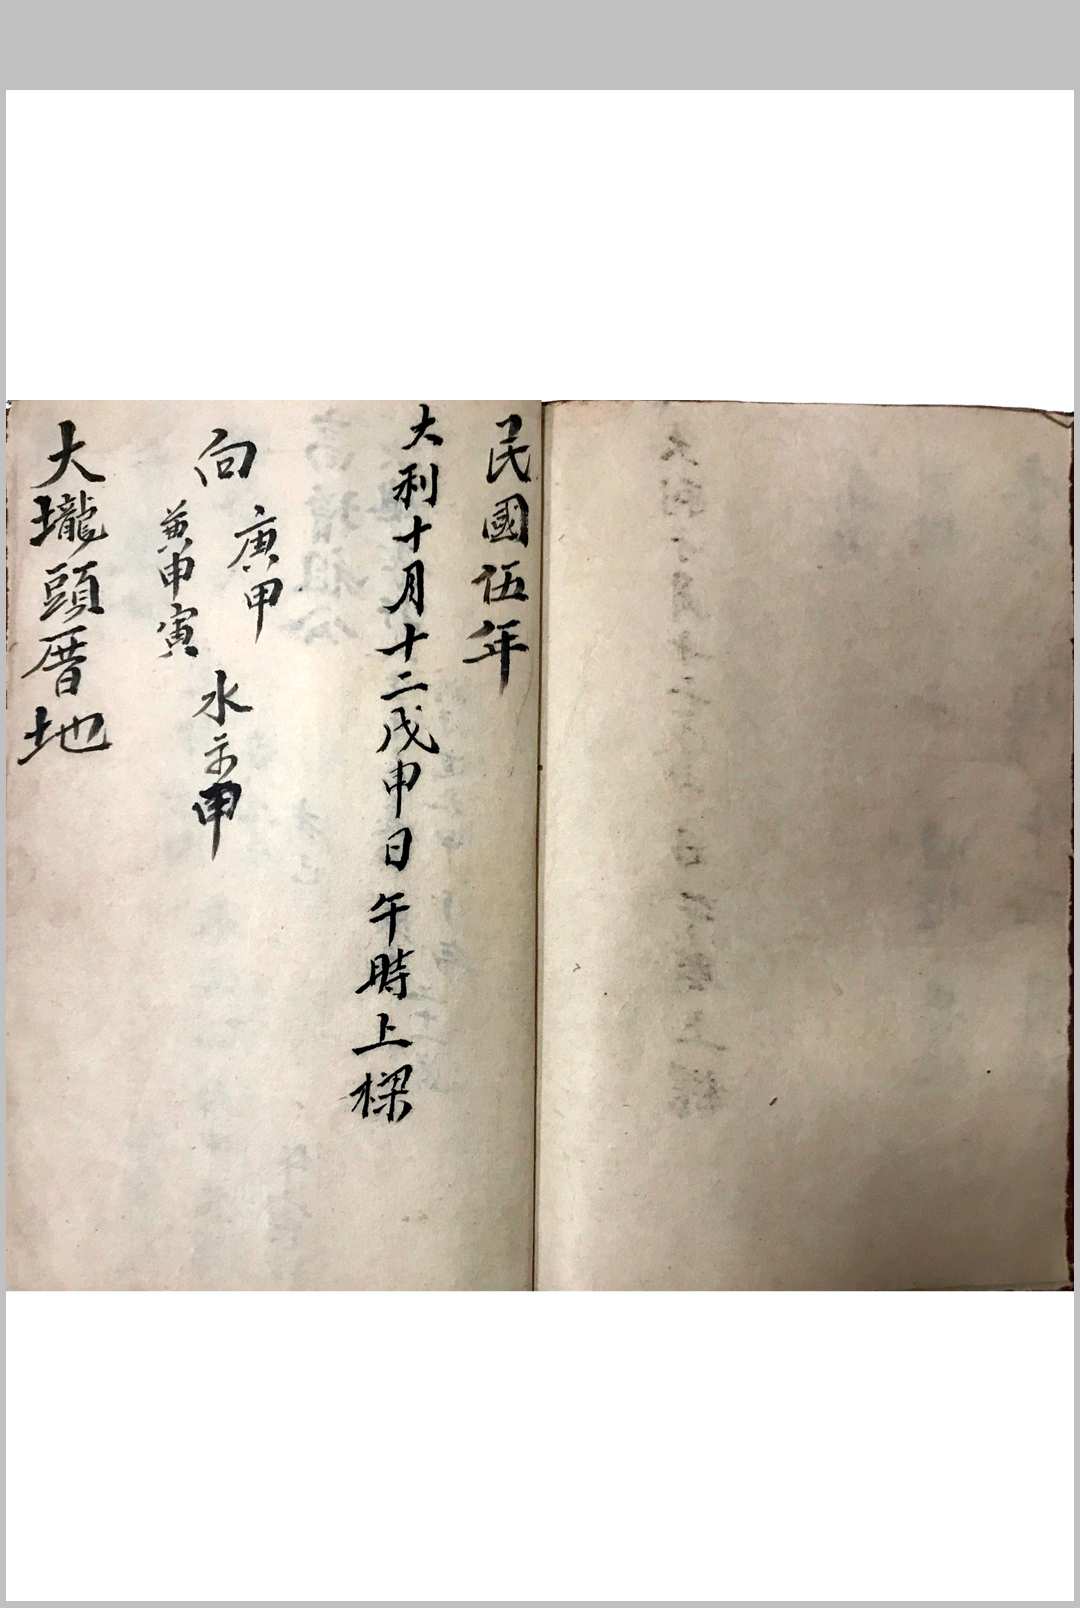 民國伍年
大利十月十二戊申日午時上樑
向庚甲
兼申寅
水示甲
大壠頭厝地